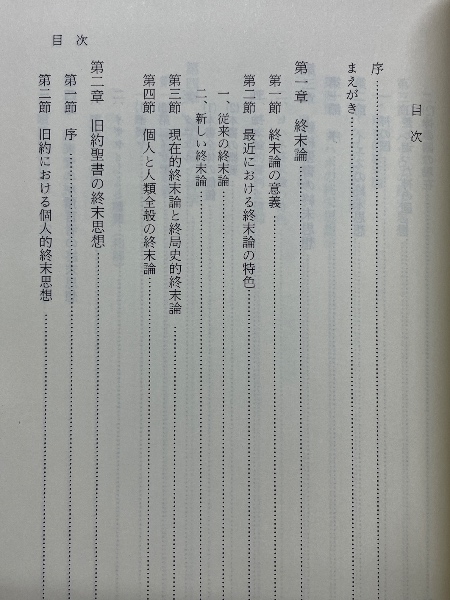 目次
目次
序
まえがき
第一章 終末論
第一節 終末論の意義
第二節 最近における終末論の特色
一、従来の終末論
二、新しい終末論
第三節 現在的終末論と終局史的終末論
第四節 個人と人類全般の終末論
第二章 旧約聖書の終末思想
第一節 序
第二節 旧約における個人的終末思想